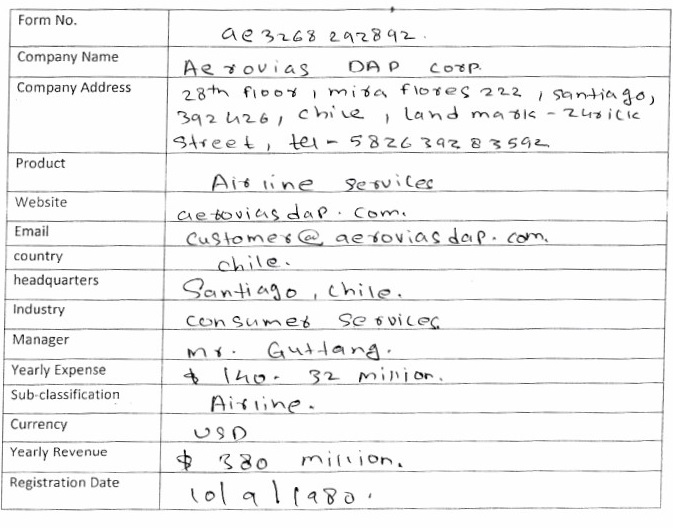 Form No. ae3268292892.
Company Name Aerovias DAP corp.
Company Address 28th floor, mira flores 222, santiago,
392426, chile, land mark - zurick
street, tel - 582639283592
Product Airline services
Website aeroviasdap.com.
Email customer@aeroviasdap.com.
country chile.
headquarters Santiago, chile.
Industry consumer services
Manager mr. Guttang.
Yearly Expense $ 140.32 million.
Sub-classification Airline.
Currency USD
Yearly Revenue $ 380 million.
Registration Date 10/9/1980.